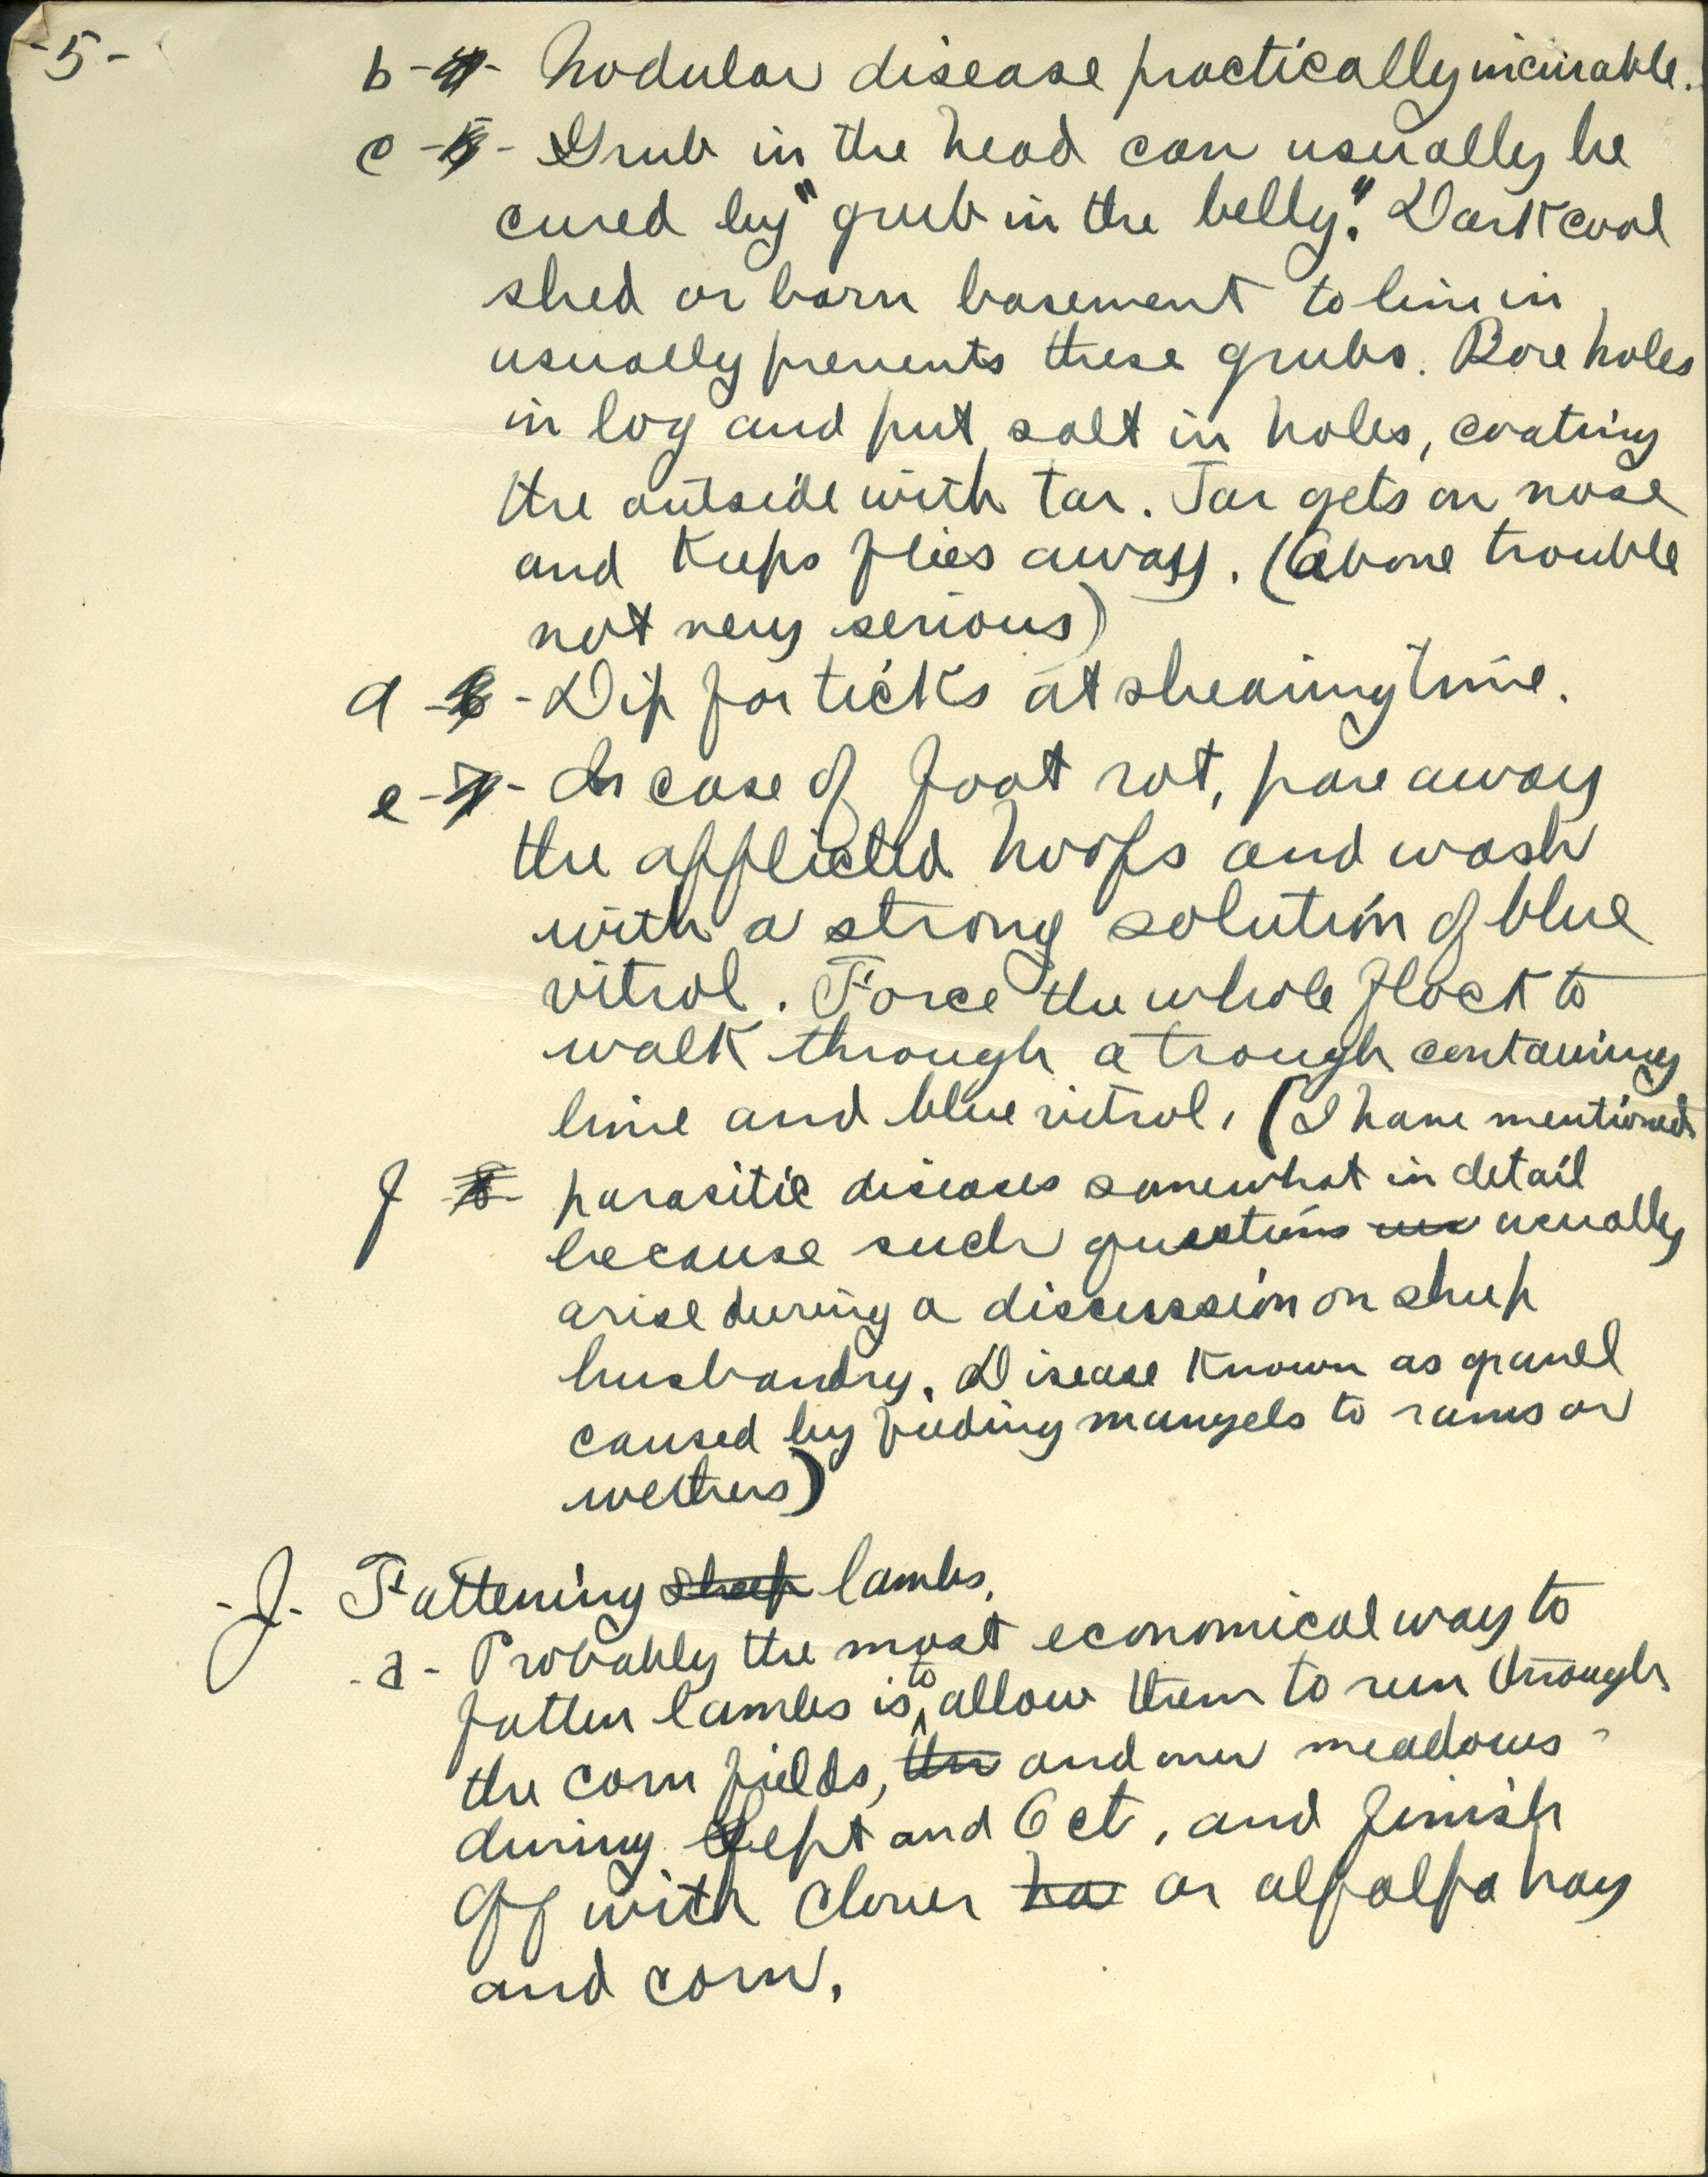 -5-
b - 4 - Nodular disease practically incurable.
c - 5 - Grub in the head can usually be
cured by "grub in the belly." Dark cool
shed or barn basement to lie in
usually prevents these grubs. Bore holes
in log and put salt in holes, coating
the outside with tar. Tar gets on nose
and keeps flies away. (Above trouble
not very serious)
d - 6 - Dip for ticks at shearing time.
e - 7 - In case of foot rot, pare away
the afflicted hoofs and wash
with a strong solution of blue
vitrol. Force the whole flock to
walk through a trough containing
lime and blue vitrol. (I have mentioned
f 8 - parasitic diseases somewhat in detail
because such questions usually
arise during a discussion on sheep
husbandry. Disease known as gravel
caused by feeding mangels to rams or
wethers)
-J- Fattening sheep lambs.
-a- Probably the most economical way to
fatten lambs is to allow them to run through
the corn fields, the and over meadows
during Sept and Oct, and finish
off with clover ha or alfalfa hay
and corn.